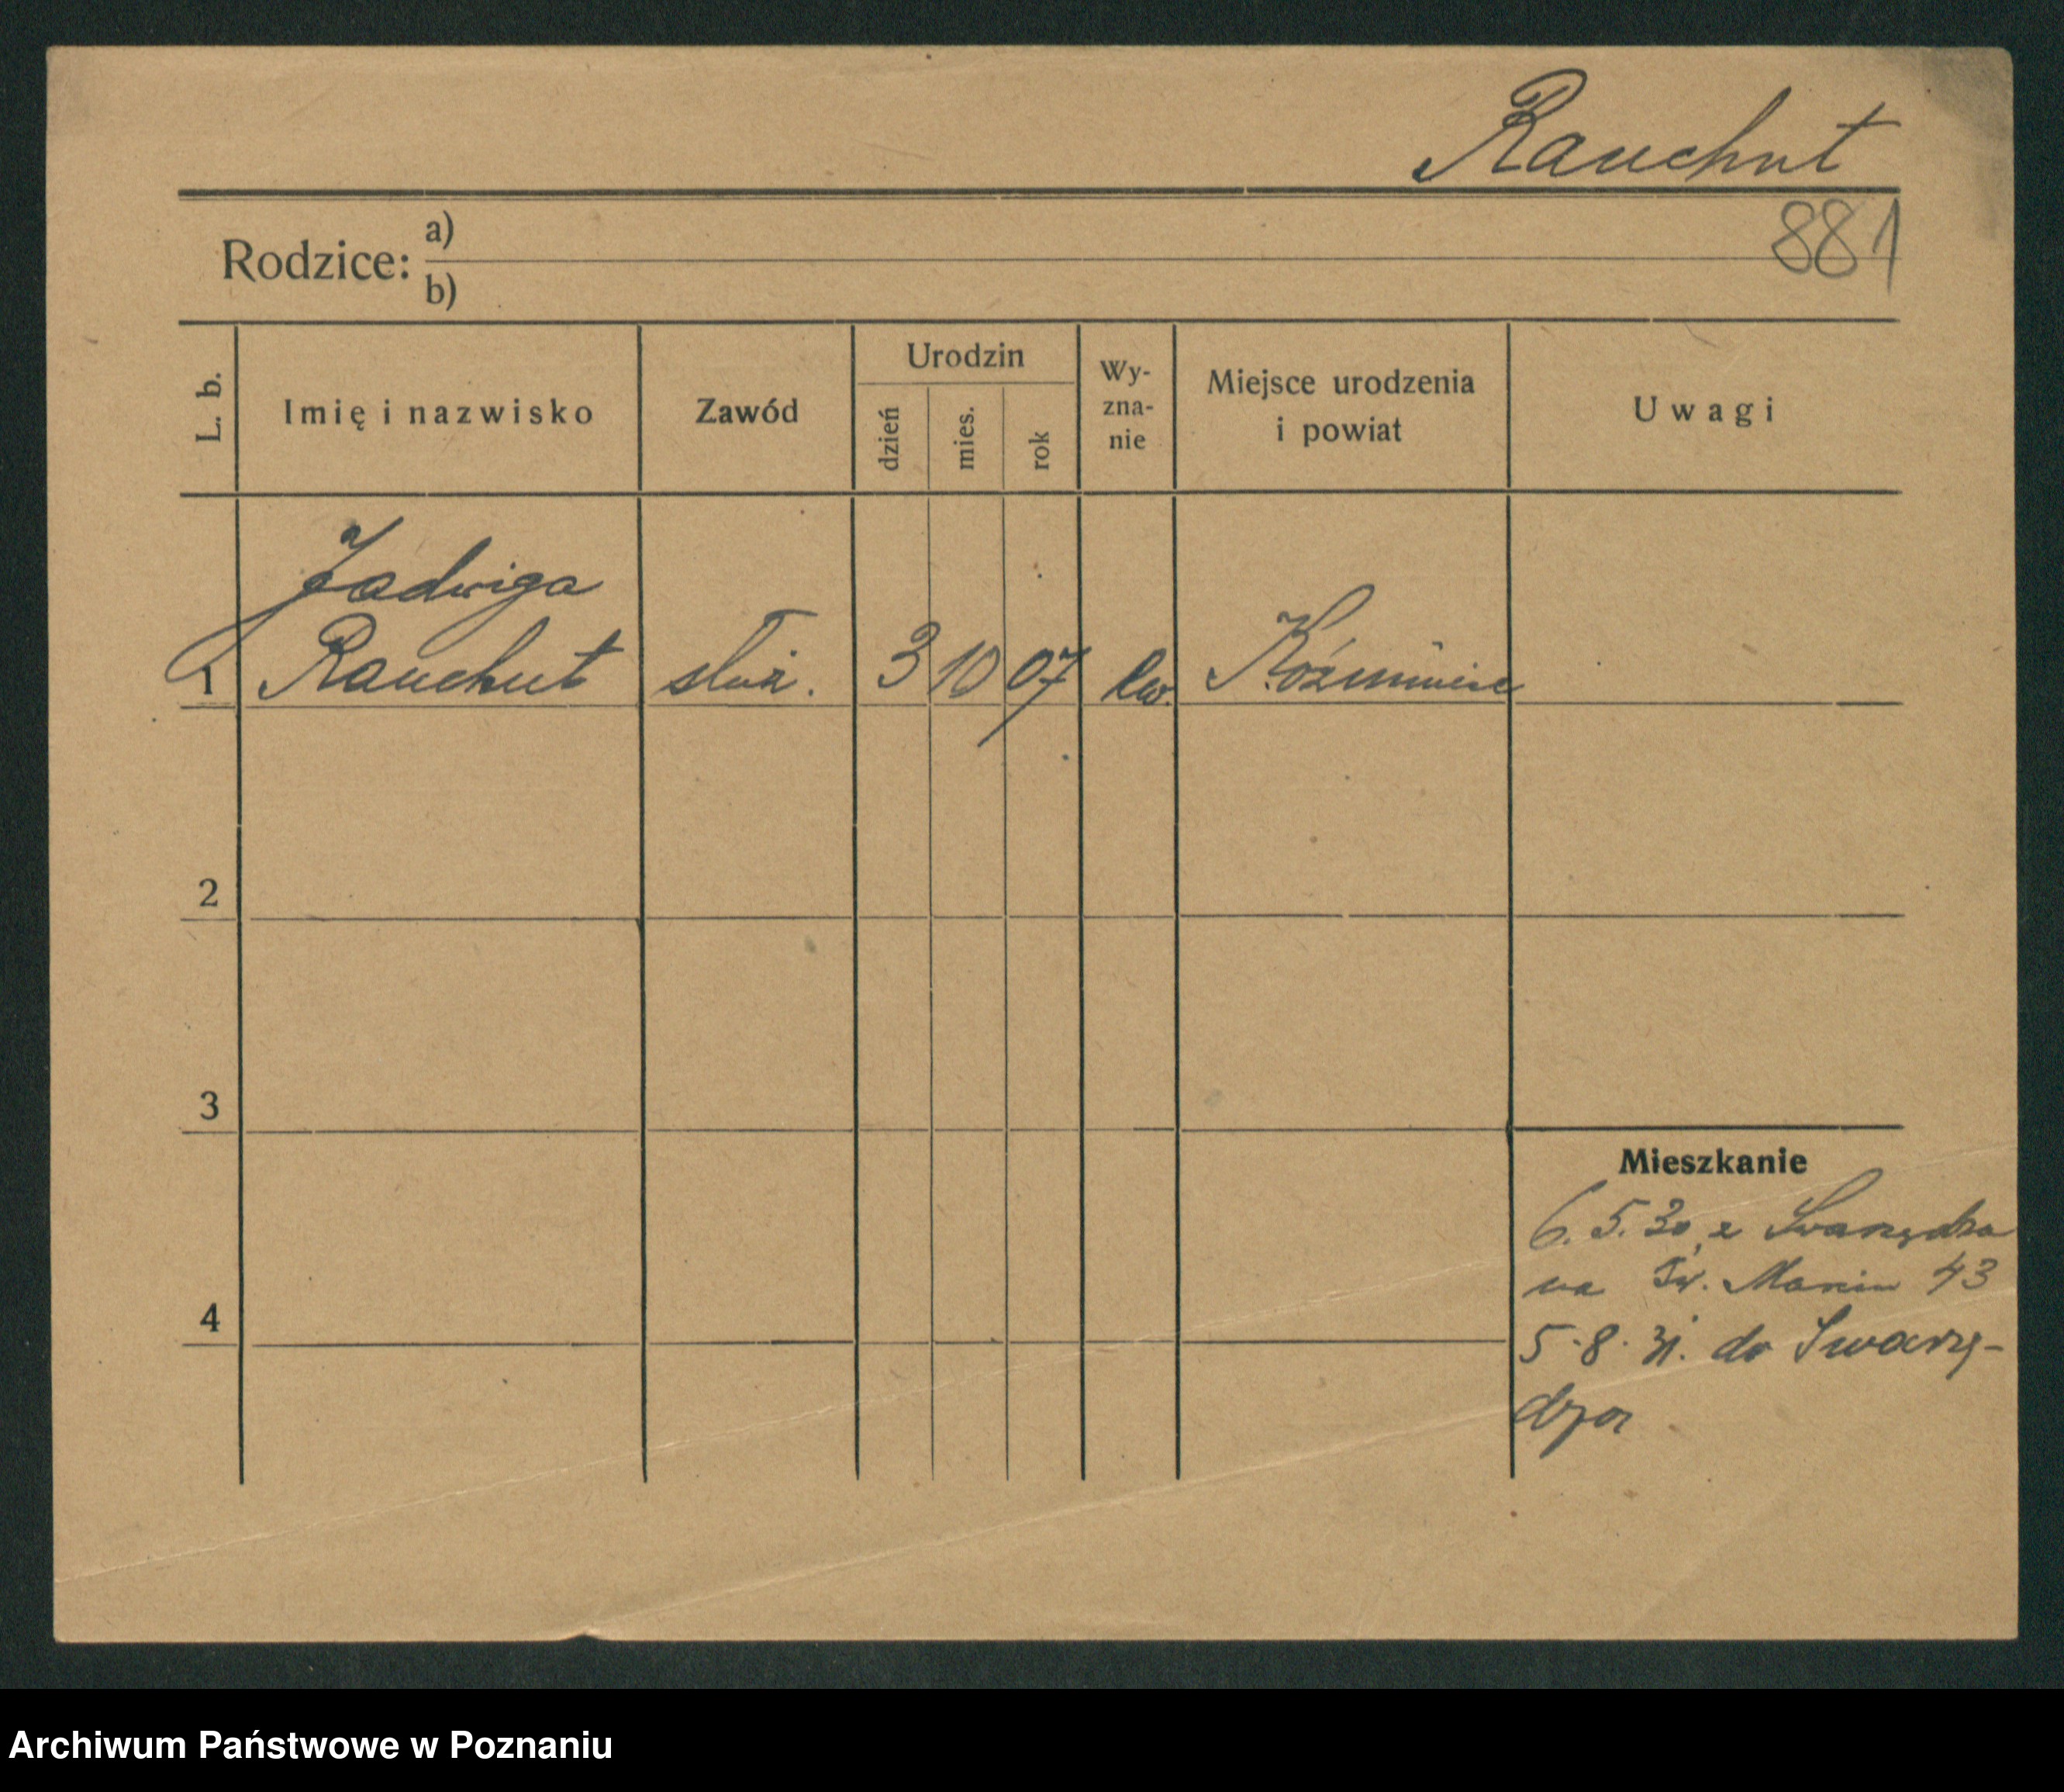 Rauchut
881
Rodzice: a)
b)
L. b.
Imię i nazwisko
Zawód
Urodzin
dzień
mies.
rok
Wy-
zna-
nie
Miejsce urodzenia
i powiat
Uwagi
Jadwiga
1 Rauchut służ. 3 10 07 ew.
2
3
4
Mieszkanie
6. 5. 30 z Swarzędza
na Św. Marcin 43
5. 8. 31. do Swarzę-
dza
Archiwum Państwowe w Poznaniu